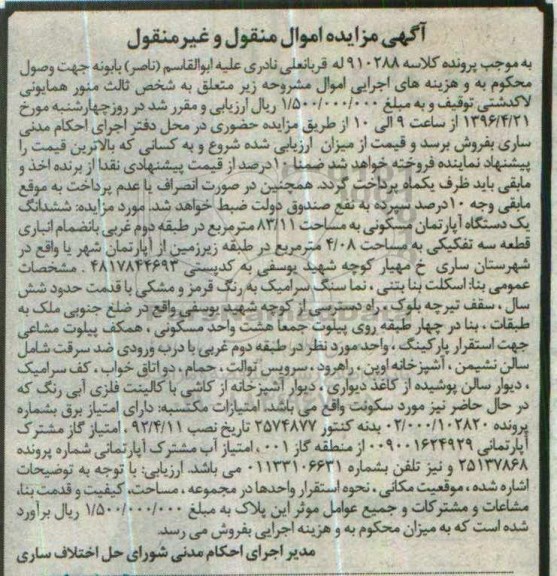 آگهی مزایده اموال منقول و غیر منقول
به موجب پرونده کلاسه ۹۱۰۲۸۸ له قربانعلی نادری علیه ابوالقاسم (ناصر) بابونه جهت وصول
محکوم به و هزینه های اجرایی اموال مشروحه زیر متعلق به شخص ثالث منور همایونی
لاکدشتی توقیف و به مبلغ ۱/۵۰۰/۰۰۰/۰۰۰ ریال ارزیابی و مقرر شد در روز چهارشنبه مورخ
۱۳۹۶/۴/۲۱ از ساعت ۹ الی ۱۰ از طریق مزایده حضوری در محل دفتر اجرای احکام مدنی
ساری بفروش برسد و قیمت از میزان ارزیابی شده شروع و به کسانی که بالاترین قیمت را
پیشنهاد نماینده فروخته خواهد شد ضمنا ۱۰درصد از قیمت پیشنهادی نقدا از برنده اخذ و
مابقی باید ظرف یکماه پرداخت گردد. همچنین در صورت انصراف یا عدم پرداخت به موقع
مابقی وجه ۱۰درصد سپرده به نفع صندوق دولت ضبط خواهد شد. مورد مزایده: ششدانگ
یک دستگاه آپارتمان مسکونی به مساحت ۸۳/۱۱ مترمربع در طبقه دوم غربی بانضمام انباری
قطعه سه تفکیکی به مساحت ۴/۰۸ مترمربع در طبقه زیرزمین از آپارتمان شهر یا واقع در
شهرستان ساری خ مهیار کوچه شهید یوسفی به کدپستی ۴۸۱۷۸۴۴۶۹۳ . مشخصات
عمومی بنا: اسکلت بنا بتنی ، نما سنگ سرامیک به رنگ قرمز و مشکی با قدمت حدود شش
سال ، سقف تیرچه بلوک ، راه دسترسی از کوچه شهید یوسفی واقع در ضلع جنوبی ملک به
طبقات . بنا در چهار طبقه روی پیلوت جمعا هشت واحد مسکونی ، همکف پیلوت مشاعی
جهت استقرار پارکینگ . واحد مورد نظر در طبقه دوم غربی با درب ورودی ضد سرقت شامل
سالن نشیمن ، آشپزخانه اوپن ، راهرود ، سرویس توالت ، حمام ، دو اتاق خواب ، کف سرامیک
، دیوار سالن پوشیده از کاغذ دیواری ، دیوار آشپزخانه از کاشی با کابینت فلزی آبی رنگ که
در حال حاضر نیز مورد سکونت واقع می باشد. امتیازات مکتسبه: دارای امتیاز برق بشماره
پرونده ۰۲/۰۰۰/۱۰۲۸۲۰ بدنه کنتور ۲۵۷۴۸۷۷ تاریخ نصب ۹۲/۴/۱۱ ، امتیاز گاز مشترک
آپارتمانی ۰۰۹۰۰۱۶۲۴۹۲۹ از منطقه گاز ۰۰۱ ، امتیاز آب مشترک آپارتمانی شماره پرونده
۲۵۱۳۷۸۶۸ و نیز تلفن بشماره ۰۱۱۳۳۱۰۶۶۳۱ می باشد. ارزیابی: با توجه به توضیحات
اشاره شده ، موقعیت مکانی ، نحوه استقرار واحدها در مجموعه ، مساحت، کیفیت و قدمت بنا،
مشاعات و مشترکات و جمیع عوامل موثر این پلاک به مبلغ ۱/۵۰۰/۰۰۰/۰۰۰ ریال برآورد
شده است که به میزان محکوم به و هزینه اجرایی بفروش می رسد.
مدیر اجرای احکام مدنی شورای حل اختلاف ساری